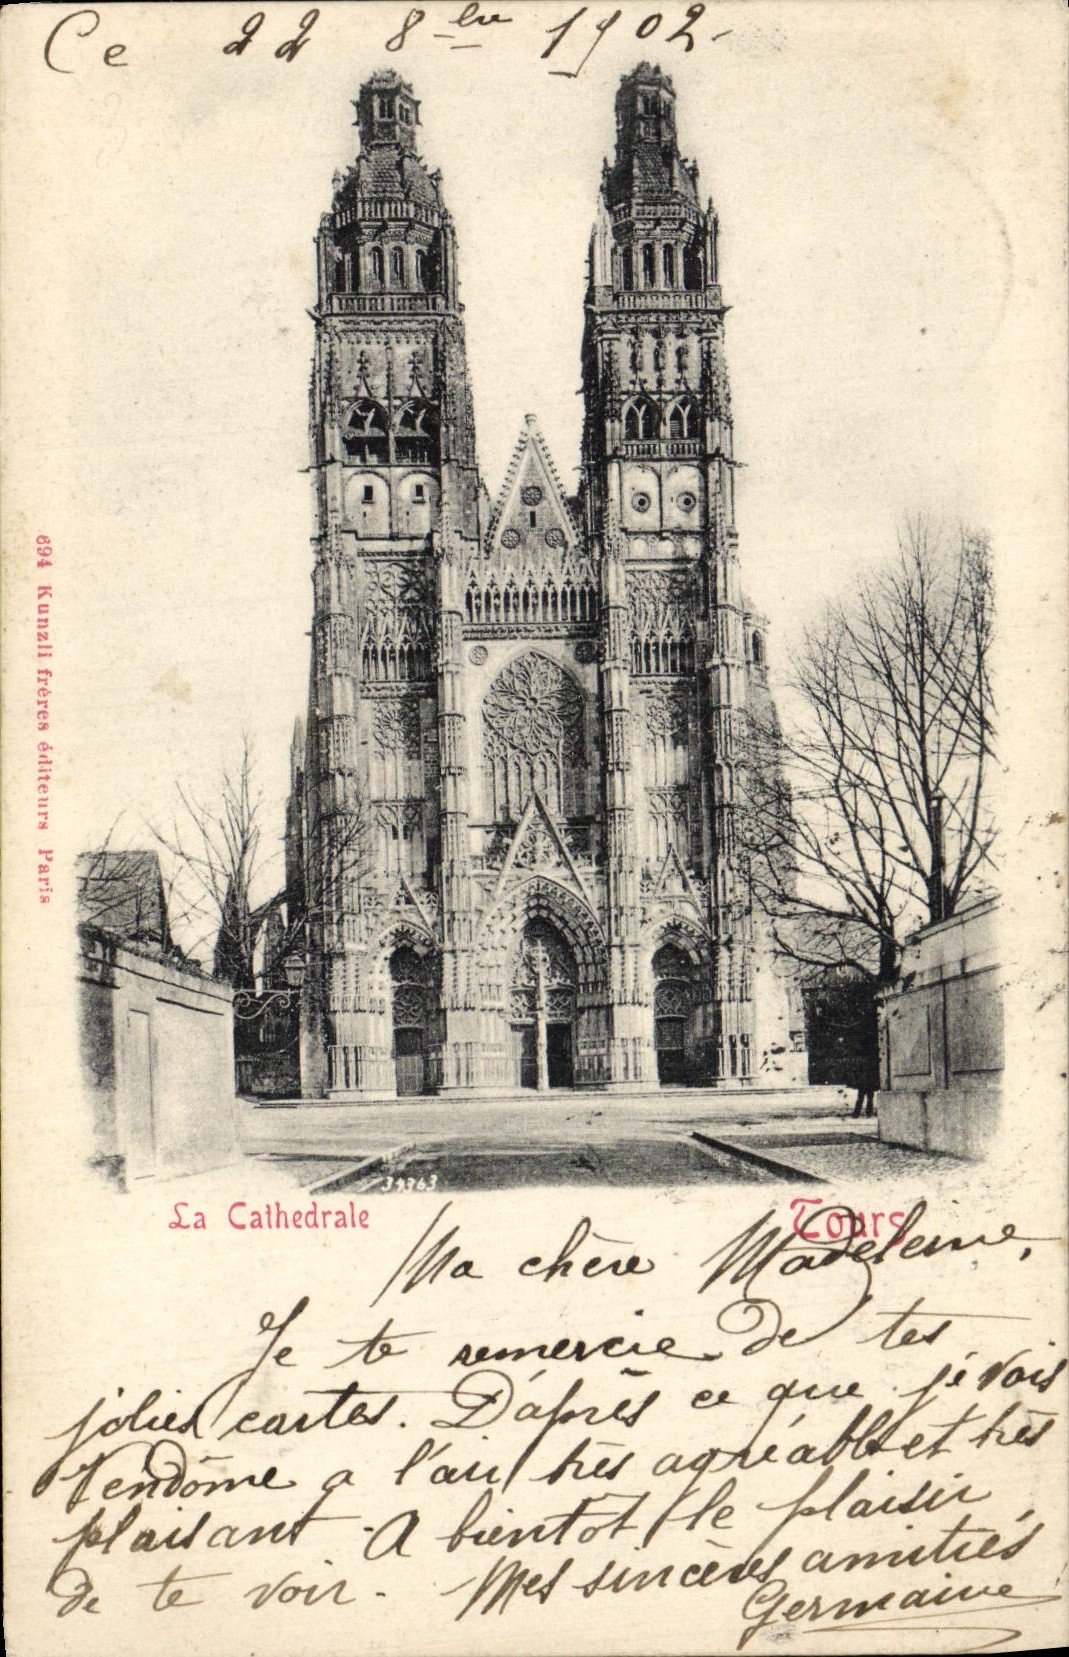 Ce 22 8bre 1902-
694 Kunzli frères éditeurs Paris
34363
La Cathedrale
Tours
Ma chère Madeleine,
Je te remercie de tes
jolies cartes. D'après ce que je vois
Vendôme a l'air très agréable et très
plaisant. A bientôt le plaisir
de te voir. Mes sincères amitiés
Germaine